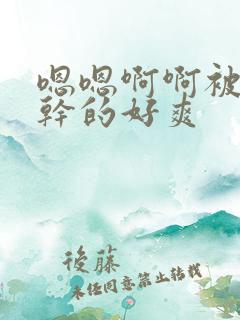 嗯嗯啊啊被
幹的好爽
後藤
未经同意禁止转载